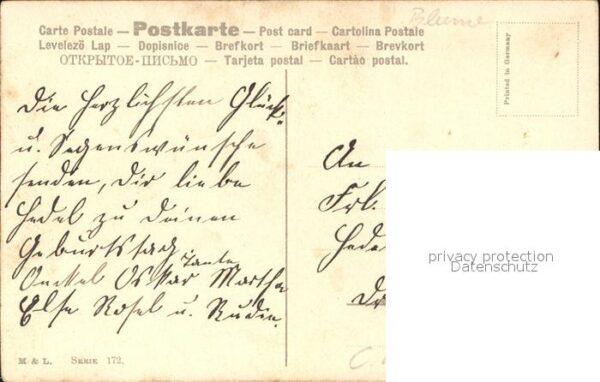 Blume
Carte Postale — Postkarte — Post card — Cartolina Postale
Levelező Lap — Dopisnice — Brefkort — Briefkaart — Brevkort
ОТКРЫТОЕ-ПИСЬМО — Tarjeta postal — Cartão postal.
Printed in Germany
Die herzlichsten Glück-
u. Segenswünsche
senden, Dir liebe
Hedel zu Deinen
Geburtstag
Onckel Oskar Tante Martha
Else Rosel u. Rudi.
An
Frl.
Hede
privacy protection
Datenschutz
M & L. SERIE 172.